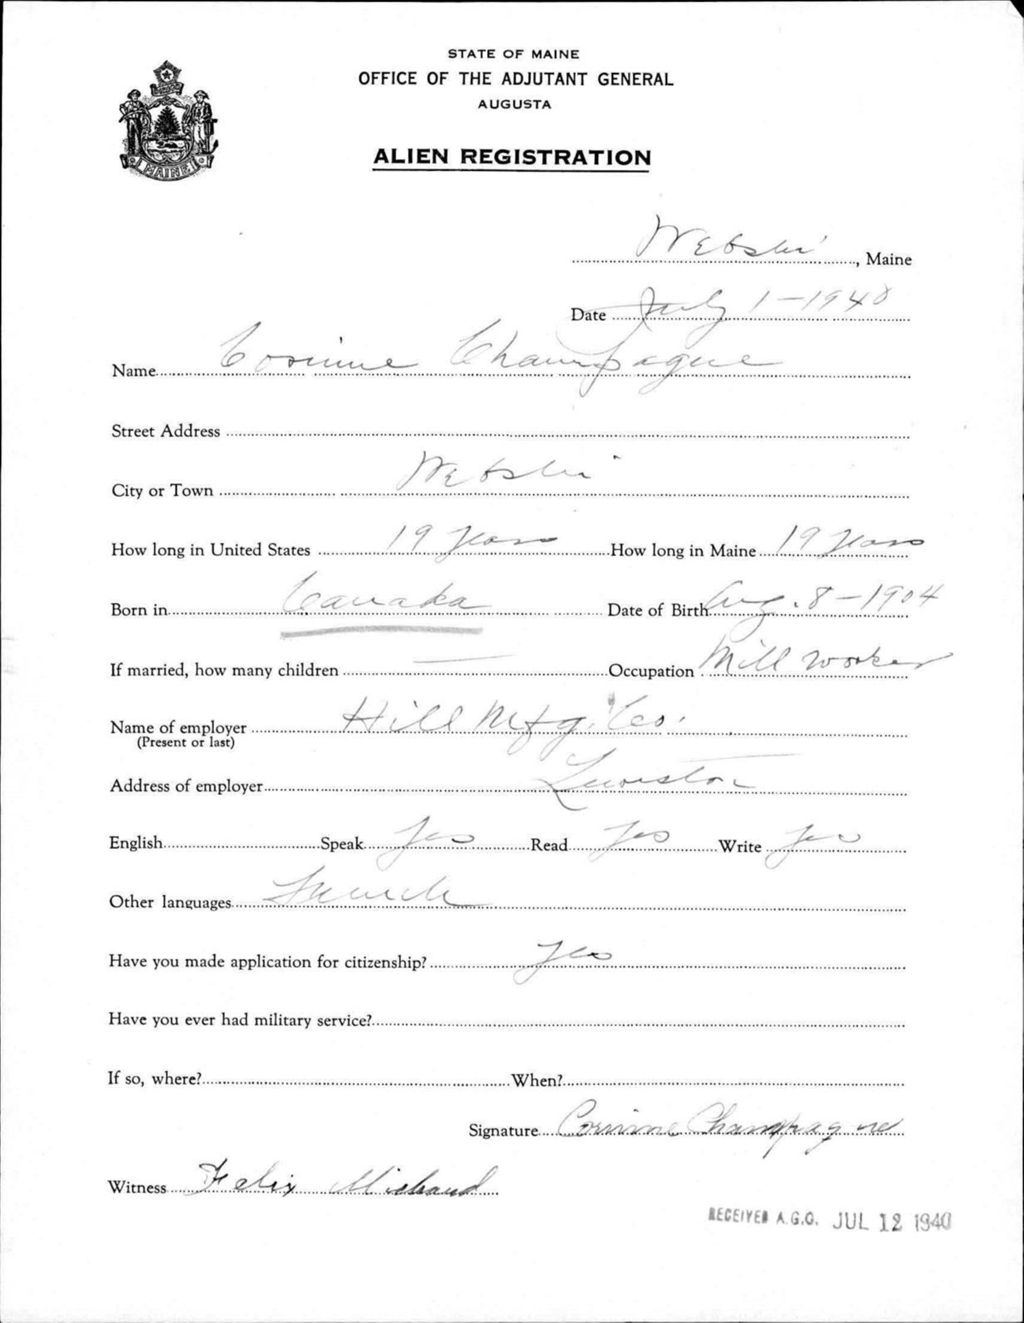 STATE OF MAINE
OFFICE OF THE ADJUTANT GENERAL
AUGUSTA
ALIEN REGISTRATION
MAINE
Webster, Maine
Date July 1-1940
Name Corinne Champague
Street Address
City or Town Webster
How long in United States 19 years How long in Maine 19 years
Born in Canada Date of Birth Aug. 8-1904
If married, how many children — Occupation Mill worker
Name of employer Hill Mfg. Co.
(Present or last)
Address of employer Lewiston
English Speak Yes Read Yes Write Yes
Other languages French
Have you made application for citizenship? Yes
Have you ever had military service?
If so, where? When?
Signature Corinne Champagne
Witness Felix Michaud
RECEIVED A.G.O. JUL 12 1940